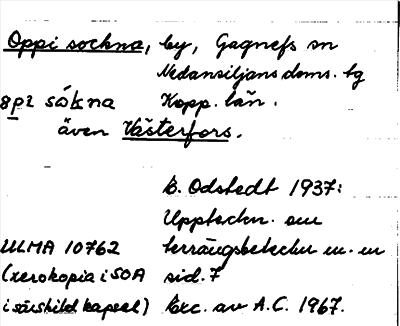 Oppi sockna, by, Gagnefs sn
Nedansiljans doms. tg
Kopp. län.
även Västerfors.
E. Odstedt 1937:
Uppteckn. om
terrängbeteckn m. m
sid. 7
ULMA 10762
(xerokopia i SOA
i särskild kapsel)
Exc. av A.C. 1967.